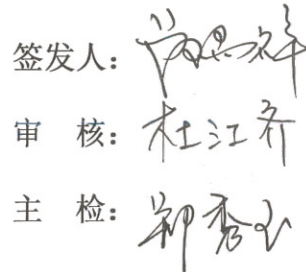 签发人：
审 核：杜江齐
主 检：郑秀玉